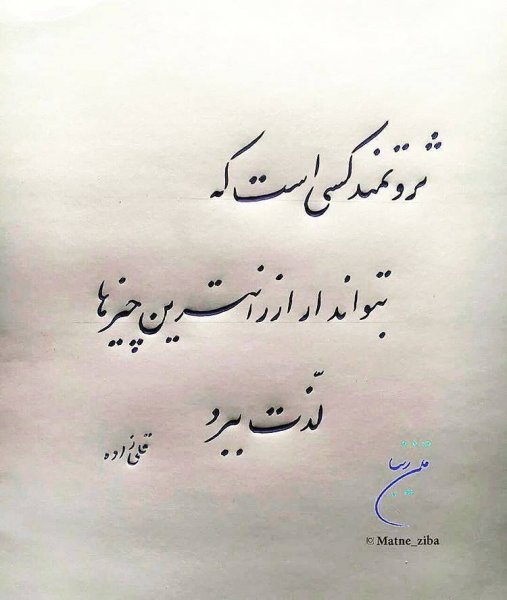 ثروتمند کسی است که
بتواند از ارزانترین چیزها
لذّت ببرد
قلی زاده
متن زیبا
© Matne_ziba